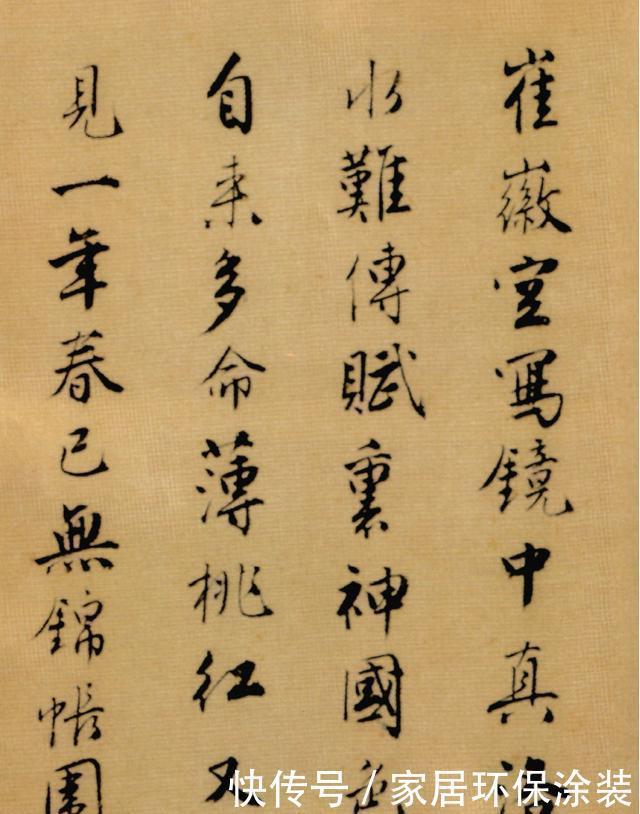 崔徽空寫鏡中真洛
水難傳賦裏神國色
自來多命薄桃紅又
見一年春已無錦帳圍
快传号 / 家居环保涂装